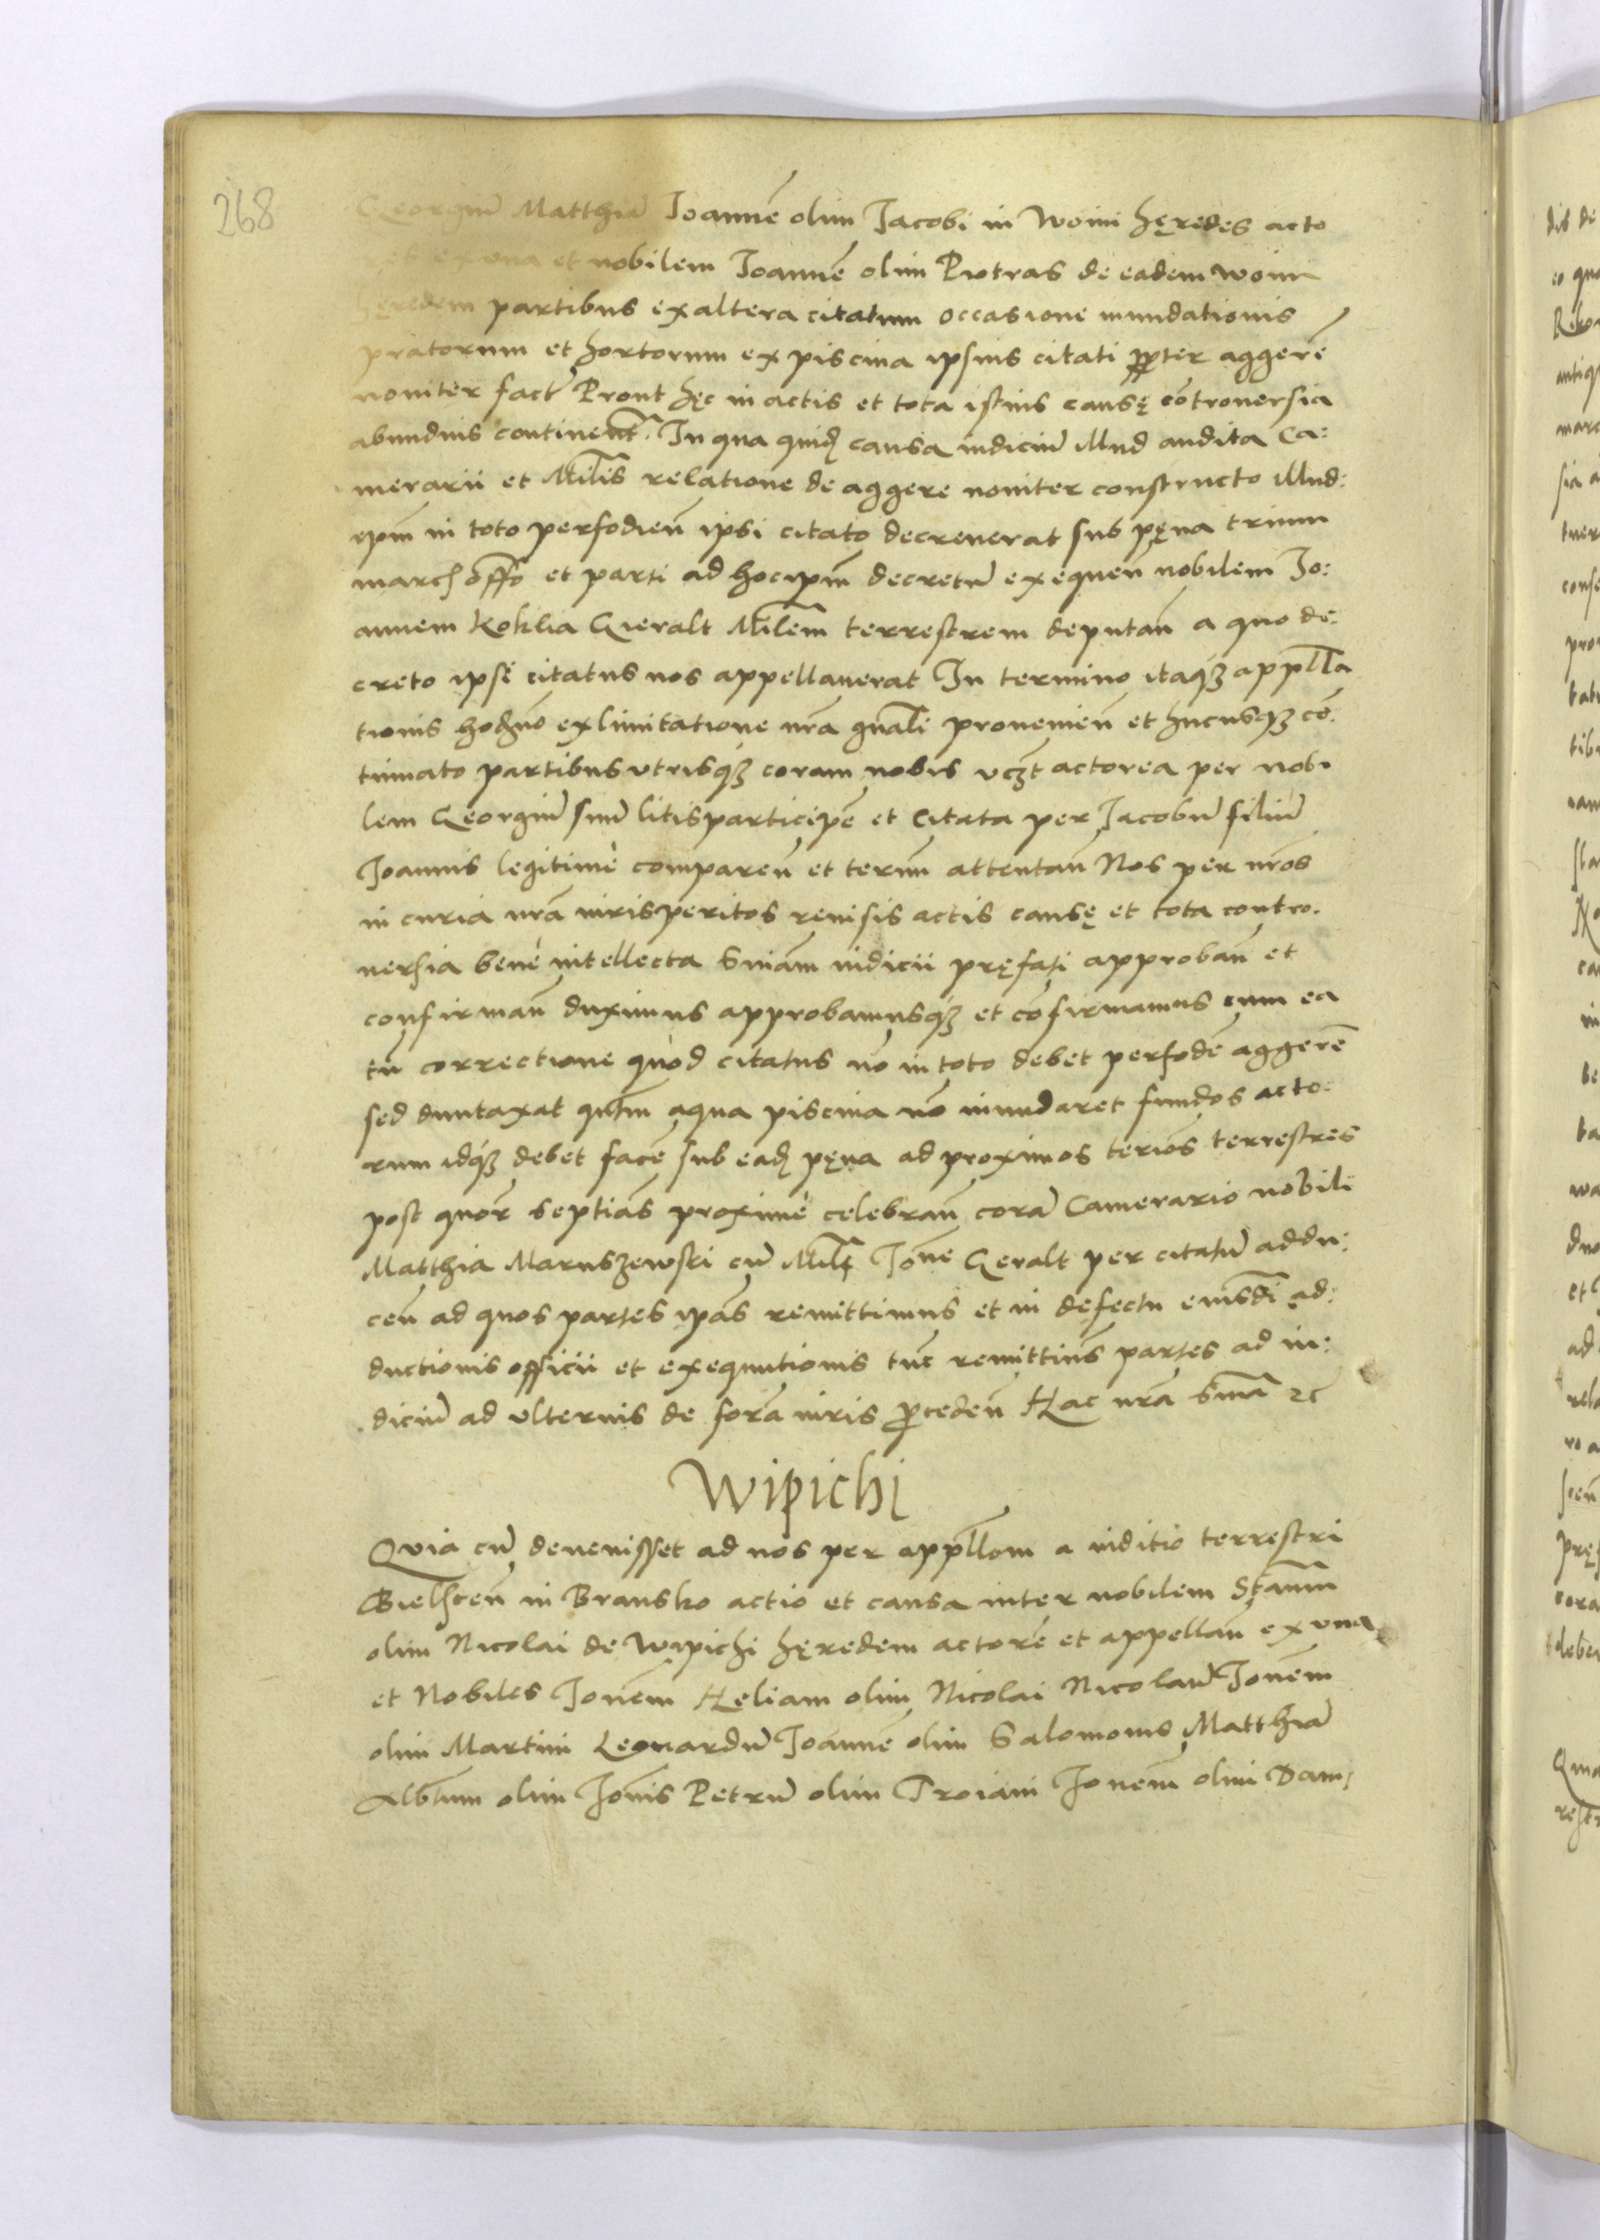 268
Georgiū Matthiā Joannē olim Jacobi in Woini hęredes acto
ex una et nobilem Joannē olim Piotras de eadem Woini
hęredem partibus ex altera citatum occasione inundationis
pratorum et hortorum ex piscina ipsius citati ꝓpter aggerē
noviter factū Prout hęc in actis et tota istius causę cōtroversia
abundius continentr̄. In qua quidē causa iudiciū illud audita Ca:
merarii et Mil̄tis relatione de aggere noviter constructo illud:
ipm̄ in toto perfodien̄ ipsi citato decreverat sub pęna trium
march offō et parti ad hoc ipm̄ decretū exequen̄ nobilem Jo:
annem Koklia Gieralt Mil̄tem terrestrem deputan̄ a quo de:
creto ipse citatus nos appellaverat In termino itaqȝ appl̄la
tionis hodn̄o ex limitatione nr̄a gn̄ali provenien̄ et hucusqȝ cō
tinuato partibus utrisqȝ coram nobis vcȝt actorea per nobi
lem Georgiū suū litis participē et Citata per Jacobū filiū
Joannis legitimè comparen̄ et termn̄ attentan̄ Nos per nr̄os
in curia nr̄a iurisperitos revisis actis causę et tota contro.
versia benè intellecta Sn̄iam iudicii pręfati approban̄ et
confirman̄ duximus approbamusqȝ et cōfirmamus cum ea
tn̄ correctione quòd citatus nō in toto debet perfodē aggerē
sed duntaxat qn̄tm aqua piscina nō inundaret fundos acto:
rum idqȝ debet facē sub eadē pęna ad proximos termōs terrestres
post quor̄ septiās proximè celebran̄ corā Camerario nobili
Matthia Maruszewski cū Mil̄te Jon̄e Geralt per citatū addu:
cen̄ ad quos partes ip̄as remittimus et in defectu eiusdī ad:
ductionis officii et exequutionis tūc remittimꝰ partes ad iu:
diciū ad ulterius de formā iuris ꝓceden̄ Hac nr̄a Sn̄ia ꝛc
Wipichi
Quia cū devenisset ad nos per appl̄lom a iuditio terrestri
Bielscen̄ in Bransko actio et causa inter nobilem Stan̄m
olim Nicolai de Wipichi hęredem actorē et appellan̄ ex una
et Nobiles Jon̄em Heliam olim Nicolai Nicolaū Jon̄em
olim Martini Leonardū Joannē olim Salomonis Matthiā
Albtum olim Jon̄is Petrū olim Troiani Jon̄em olim Dam: